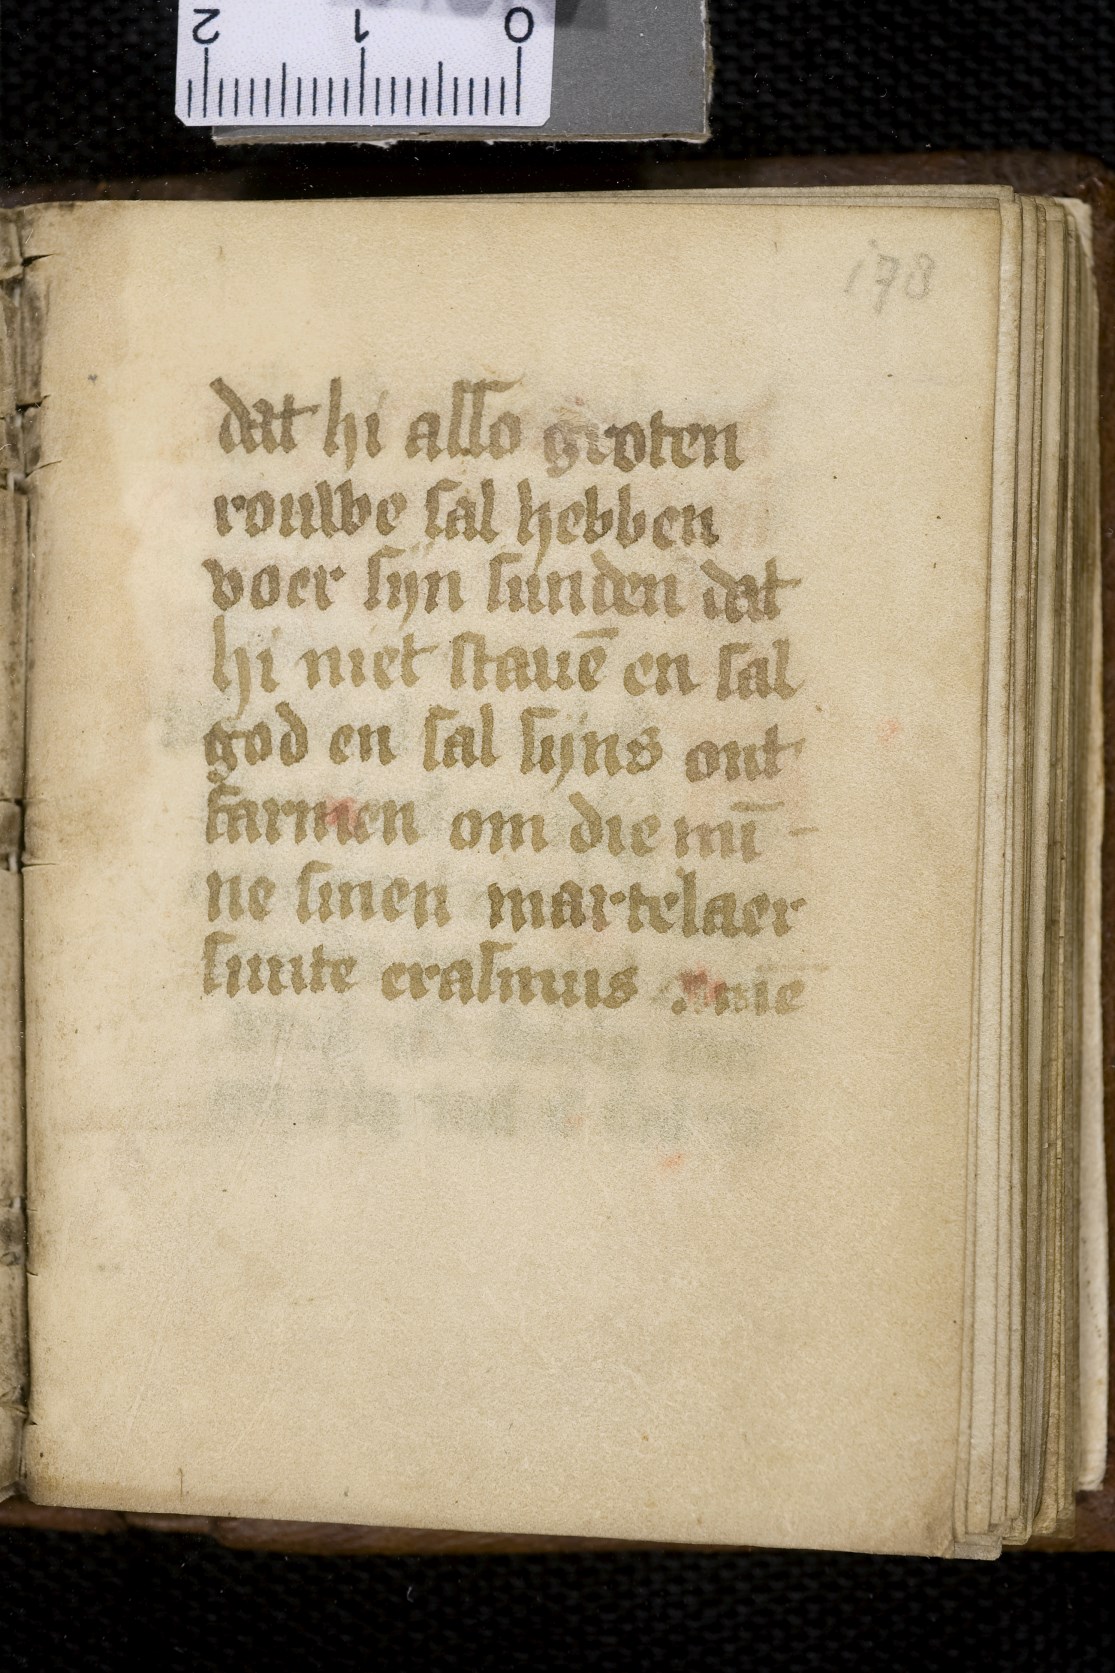 2 1 0
178
dat hi also groten
rouwe sal hebben
voer sijn sunden dat
hi niet stauē en sal
god en sal sijns ont
farmen om die mī-
ne sinen martelaer
sunte erasmus Amē